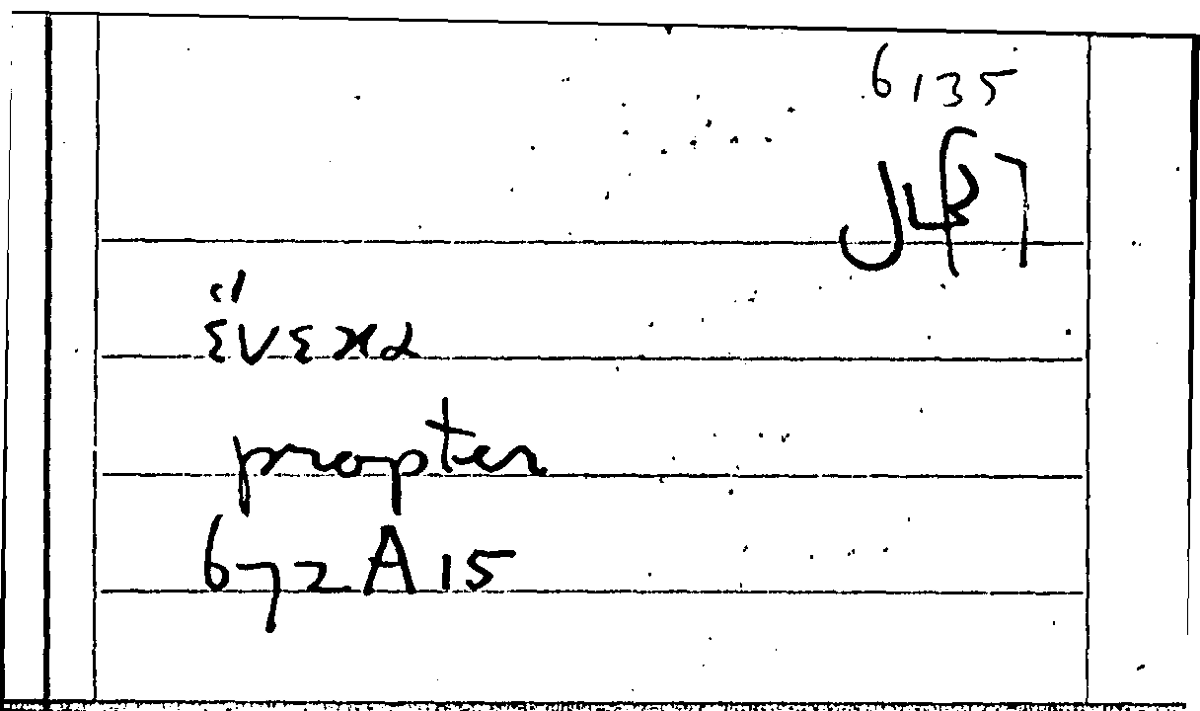 6135
ἕνεκα
propter
672A15